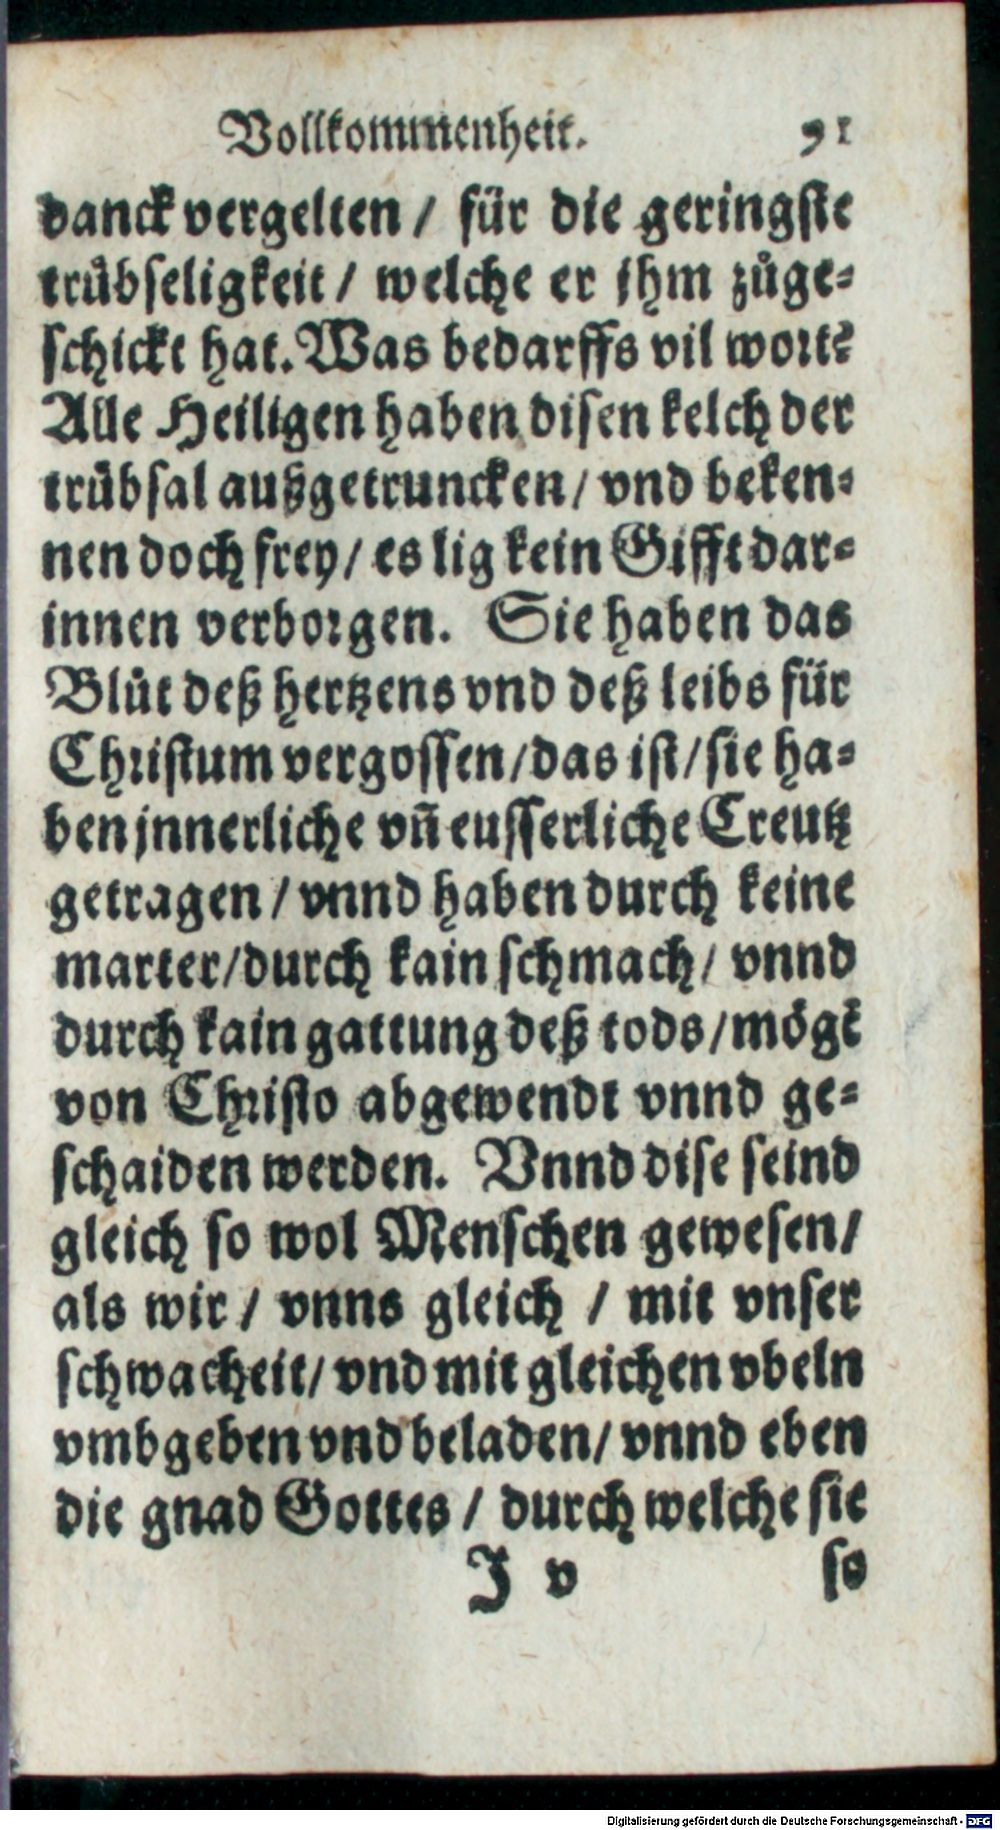 Vollkommenheit. 91
danck vergelten / für die geringſte
trübſeligkeit / welche er jhm zůge⸗
ſchickt hat. Was bedarffs vil wort?
Alle Heiligen haben diſen kelch der
trübſal außgetruncken / vnd beken⸗
nen doch frey / es lig kein Gifft dar⸗
innen verborgen. Sie haben das
Blůt deß hertzens vnd deß leibs für
Chriſtum vergoſſen / das iſt / ſie ha⸗
ben jnnerliche vñ euſſerliche Creutz
getragen / vnnd haben durch keine
marter / durch kain ſchmach / vnnd
durch kain gattung deß tods / mögẽ
von Chriſto abgewendt vnnd ge⸗
ſchaiden werden. Vnnd diſe ſeind
gleich ſo wol Menſchen geweſen /
als wir / vnns gleich / mit vnſer
ſchwacheit / vnd mit gleichen vbeln
vmbgeben vnd beladen / vnnd eben
die gnad Gottes / durch welche ſie
J v ſo
Digitalisierung gefördert durch die Deutsche Forschungsgemeinschaft - DFG